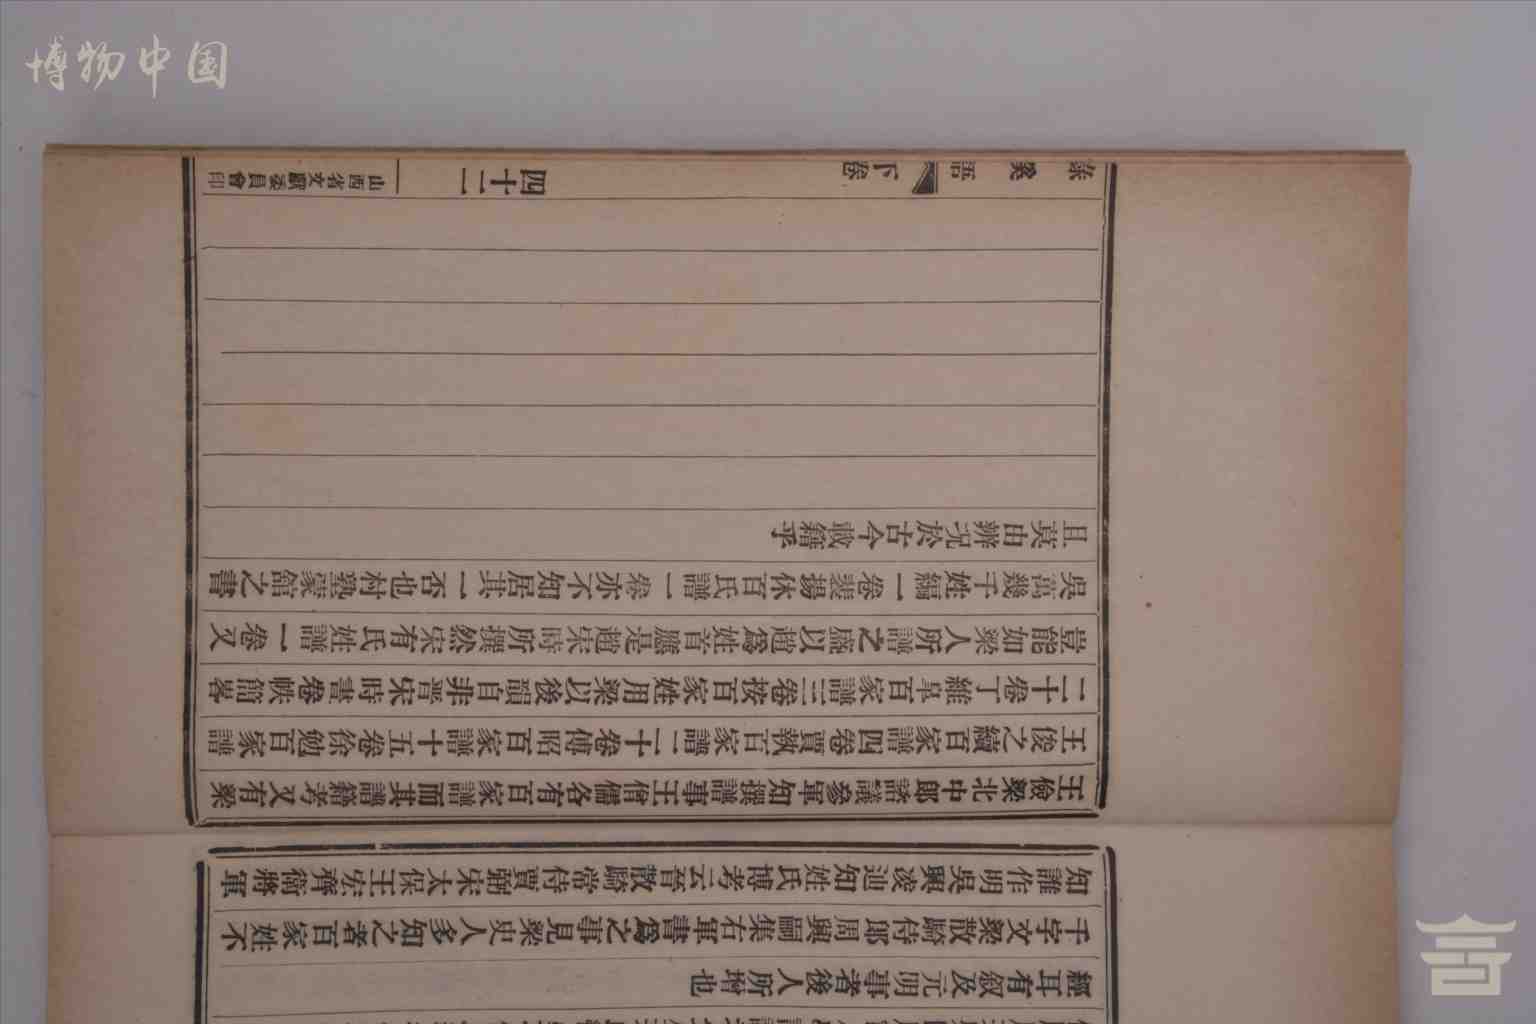 經耳有敘及元明事者後人所增也
千字文梁散騎侍郎周興嗣集右軍書爲之事見梁史人多知之者百家姓不
知誰作明吳興凌迪知姓氏博考云晉散騎常侍賈弼宋太保王宏齊衛將軍
王儉梁北中郎諮議參軍知撰譜事王僧孺各有百家譜而其譜籍考又有梁
王俊之續百家譜四卷賈執百家譜二十卷傅昭百家譜十五卷徐勉百家譜
二十卷丁維皐百家譜三卷按百家姓用梁以後韻自非晉宋時書卷帙簡畧
豈能如梁人所譜之盛以趙爲姓首應是趙宋時所撰然宋有氏姓譜一卷又
吳萬幾千姓編一卷裴揚休百氏譜一卷亦不知居其一否也村塾蒙館之書
且莫由辨況於古今載籍乎
語 下卷 四十二 山西省文獻委員會印
博物中国